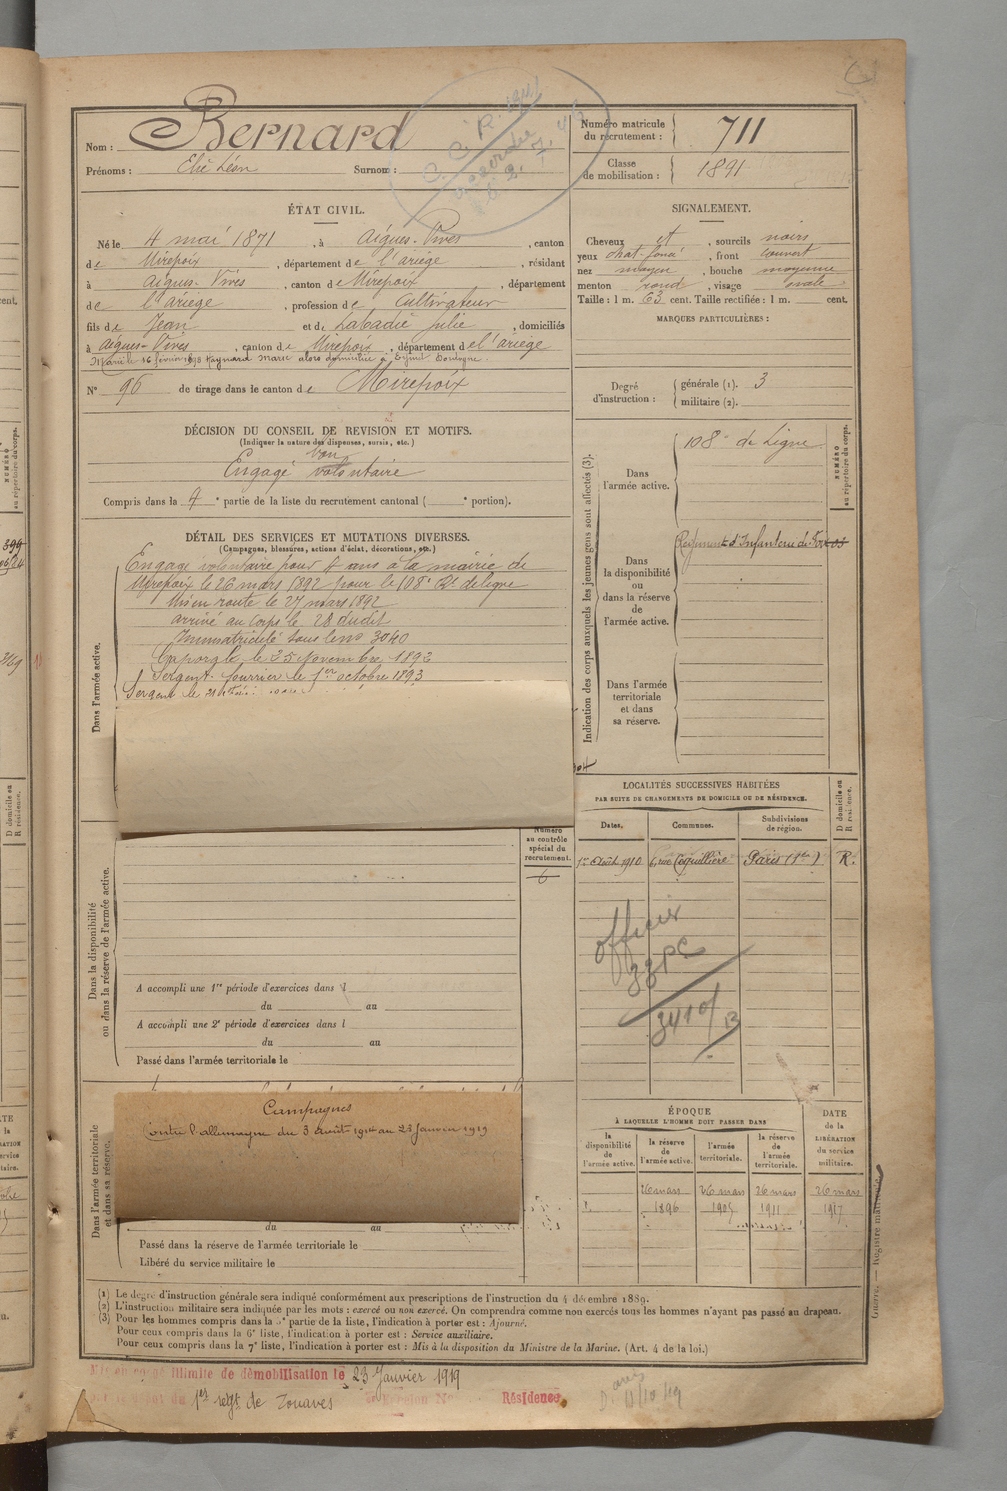 Nom : Bernard
Prénoms : Elie Léon Surnom :
Numéro matricule du recrutement : 711
Classe de mobilisation : 1891
C. C. R.
ÉTAT CIVIL.
Né le 4 mai 1871, à Aigues-Vives, canton
de Mirepoix, département de l'ariège, résidant
à Aigues-Vives, canton de Mirepoix, département
de l'ariège, profession de Cultivateur
fils de Jean et de Labadie Julie, domiciliés
à Aigues-Vives, canton de Mirepoix, département de l'ariège
Marié le 16 février 1898 Raynard Marie alors domiciliée à
N° 96 de tirage dans le canton de Mirepoix
SIGNALEMENT.
Cheveux et, sourcils noirs
yeux chat. foncé, front couvert
nez moyen, bouche moyenne
menton rond, visage ovale
Taille : 1 m. 63 cent. Taille rectifiée : 1 m. cent.
MARQUES PARTICULIÈRES :
Degré d'instruction : générale (1). 3
militaire (2).
DÉCISION DU CONSEIL DE REVISION ET MOTIFS.
(Indiquer la nature des dispenses, sursis, etc.)
bon
Engagé volontaire
Compris dans la 4e partie de la liste du recrutement cantonal ( e portion).
DÉTAIL DES SERVICES ET MUTATIONS DIVERSES.
(Campagnes, blessures, actions d'éclat, décorations, etc.)
Dans l'armée active.
Engagé volontaire pour 4 ans à la mairie de
Mirepoix le 26 mars 1892 pour le 108e Rt de ligne
Mis en route le 27 mars 1892
arrivé au corps le 28 dudit
Immatriculé sous le no 3040
Caporal le 25 Novembre 1892
Sergent-fourrier le 1er octobre 1893
Sergent le 21
Indication des corps auxquels les jeunes gens sont affectés (3).
Dans l'armée active.
108e de Ligne
Dans la disponibilité ou dans la réserve de l'armée active.
Régiment d'Infanterie de Foix
Dans l'armée territoriale et dans sa réserve.
NUMÉRO au répertoire du corps.
LOCALITÉS SUCCESSIVES HABITÉES
PAR SUITE DE CHANGEMENTS DE DOMICILE OU DE RÉSIDENCE.
Dates. Communes. Subdivisions de région. D domicile ou R résidence.
1er Août 1910 6, rue Coquillière Paris (1er) R.
officier
Numéro au contrôle spécial du recrutement.
6
Dans la disponibilité ou dans la réserve de l'armée active.
A accompli une 1re période d'exercices dans l
du au
A accompli une 2e période d'exercices dans l
du au
Passé dans l'armée territoriale le
Dans l'armée territoriale et dans sa réserve.
Campagnes
Contre l'allemagne du 3 août 1914 au 23 janvier 1919
du au
Passé dans la réserve de l'armée territoriale le
Libéré du service militaire le
ÉPOQUE
À LAQUELLE L'HOMME DOIT PASSER DANS
la disponibilité de l'armée active. la réserve de l'armée active. l'armée territoriale. la réserve de l'armée territoriale.
DATE de la LIBÉRATION du service militaire.
26 mars 26 mars 26 mars 26 mars
1896 1905 1911 1917
(1) Le degré d'instruction générale sera indiqué conformément aux prescriptions de l'instruction du 4 décembre 1889.
(2) L'instruction militaire sera indiquée par les mots : exercé ou non exercé. On comprendra comme non exercés tous les hommes n'ayant pas passé au drapeau.
(3) Pour les hommes compris dans la 5e partie de la liste, l'indication à porter est : Ajourné.
Pour ceux compris dans la 6e liste, l'indication à porter est : Service auxiliaire.
Pour ceux compris dans la 7e liste, l'indication à porter est : Mis à la disposition du Ministre de la Marine. (Art. 4 de la loi.)
Mis en congé illimité de démobilisation le 23 Janvier 1919
1er regt de Zouaves Résidence